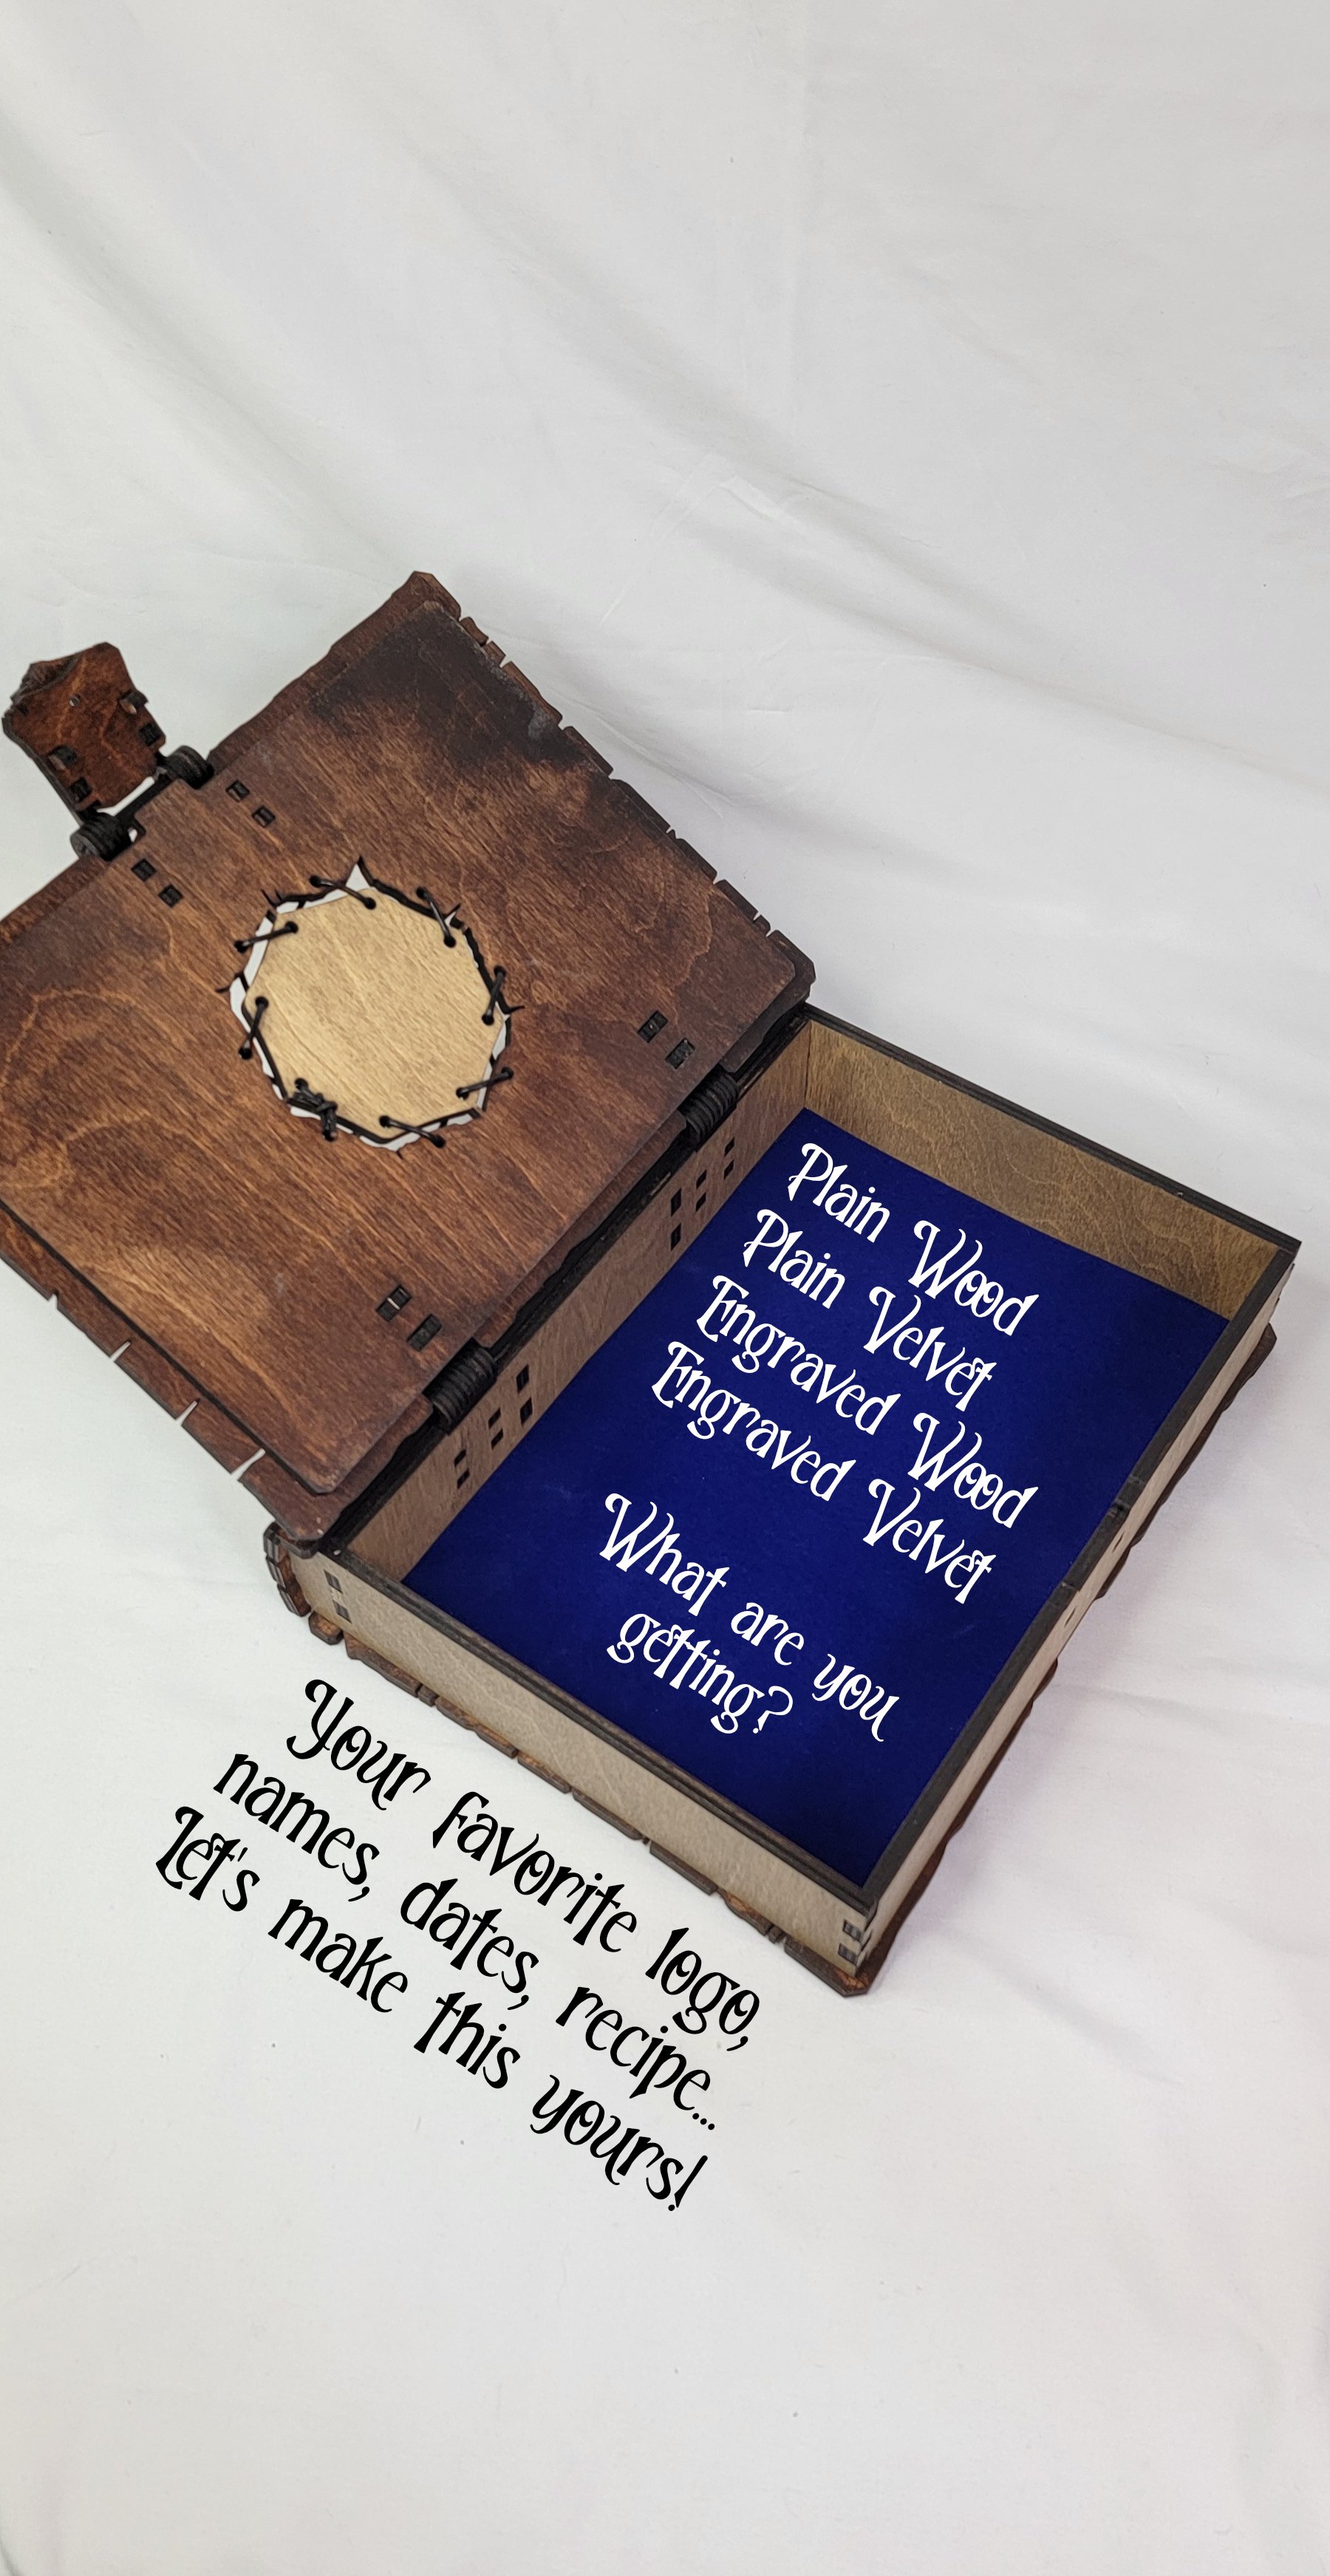 Plain Wood
Plain Velvet
Engraved Wood
Engraved Velvet
What are you
getting?
Your favorite logo,
names, dates, recipe...
Let's make this yours!